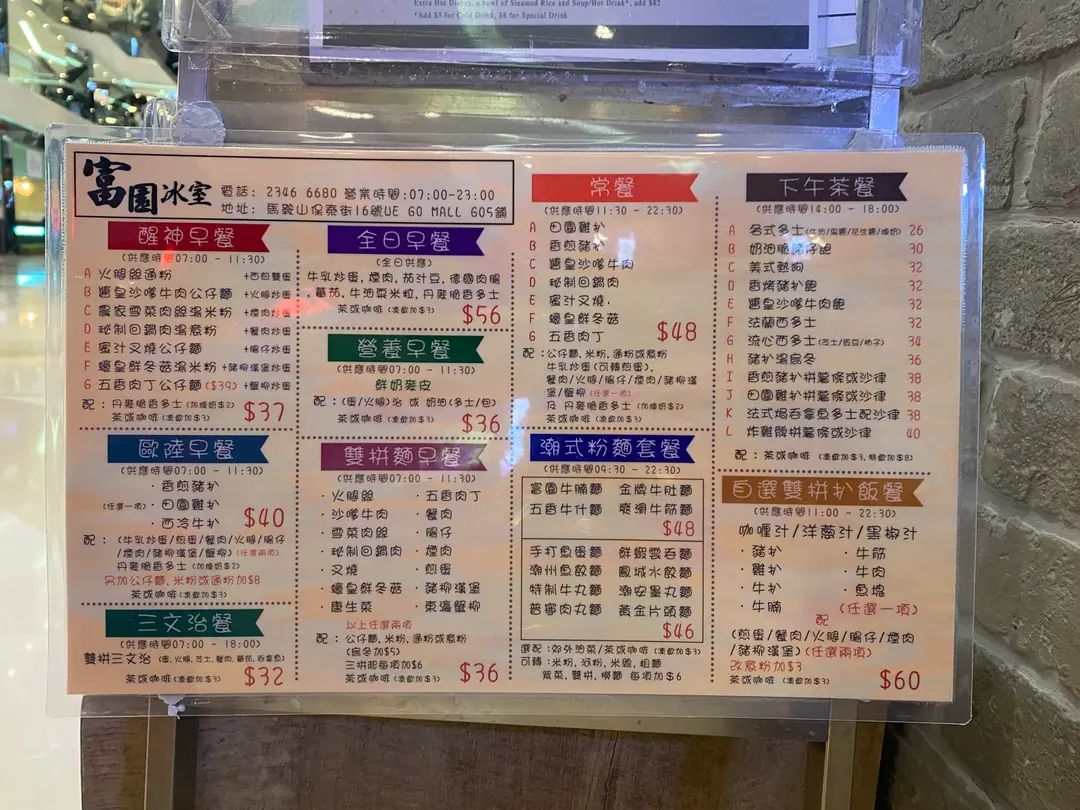 Extra Hot Dishes, a bowl of Steamed Rice and Soup/Hot Drink*, add $82
*Add $3 for Cold Drink, $8 for Special Drink
富園冰室
電話: 2346 6680 營業時間:07:00-23:00
地址: 馬鞍山保泰街16號WE GO MALL G05舖
醒神早餐
(供應時間07:00 - 11:30)
A 火腿絲通粉 +西煎雙蛋
B 醬皇沙嗲牛肉公仔麵 +火腿炒蛋
C 農家雪菜肉絲湯米粉 +煙肉炒蛋
D 秘制回鍋肉湯意粉 +餐肉炒蛋
E 蜜汁叉燒公仔麵 +腸仔炒蛋
F 蠔皇鮮冬菇湯米粉 +豬柳漢堡炒蛋
G 五香肉丁公仔麵($39) +蟹柳炒蛋
配：丹麥脆香多士 (加煉奶$2)
茶或咖啡 (凍飲加$3)
$37
歐陸早餐
(供應時間07:00 - 11:30)
· 香煎豬扒
(任選一項) · 田園雞扒
· 西冷牛扒
$40
配：(牛乳炒蛋/煎蛋/餐肉/火腿/腸仔
/煙肉/豬柳漢堡/蟹柳) (任選兩項)
丹麥脆香多士 (加煉奶$2)
另加公仔麵、米粉或通粉加$8
茶或咖啡 (凍飲加$3)
三文治餐
(供應時間07:00 - 18:00)
雙拼三文治 (蛋,火腿,芝士,餐肉,蕃茄,吞拿魚)
茶或咖啡 (凍飲加$3) $32
全日早餐
(全日供應)
牛乳炒蛋，煙肉，茄汁豆，德國肉腸
，蕃茄，牛油粟米粒，丹麥脆香多士
茶或咖啡 (凍飲加$3) $56
營養早餐
(供應時間07:00 - 11:30)
鮮奶麥皮
配：(蛋/火腿)治 或 奶油(多士/包)
茶或咖啡 (凍飲加$3) $36
雙拼麵早餐
(供應時間07:00 - 11:30)
· 火腿絲 · 五香肉丁
· 沙嗲牛肉 · 餐肉
· 雪菜肉絲 · 腸仔
· 秘制回鍋肉 · 煙肉
· 叉燒 · 煎蛋
· 蠔皇鮮冬菇 · 豬柳漢堡
· 唐生菜 · 東瀛蟹柳
以上任選兩項
配：公仔麵，米粉，通粉或意粉
(烏冬加$5)
三拼起每項加$6
茶或咖啡 (凍飲加$3) $36
常餐
(供應時間11:30 - 22:30)
A 田園雞扒
B 香煎豬扒
C 醬皇沙嗲牛肉
D 秘制回鍋肉
E 蜜汁叉燒，
F 蠔皇鮮冬菇
G 五香肉丁 $48
配：公仔麵，米粉，通粉或意粉
牛乳炒蛋(可轉煎蛋)，
餐肉/火腿/腸仔/煙肉/豬柳漢
堡/蟹柳 (任選一項)
及 丹麥脆香多士 (加煉奶$2)
茶或咖啡 (凍飲加$3)
潮式粉麵套餐
(供應時間09:30 - 22:30)
富園牛腩麵 金牌牛肚麵
五香牛什麵 爽滑牛筋麵
$48
手打魚蛋麵 鮮蝦雲吞麵
潮州魚餃麵 鳳城水餃麵
特制牛丸麵 潮安墨丸麵
普寧肉丸麵 黃金片頭麵
$46
選配：郊外油菜/茶或咖啡 (凍飲加$3)
可轉：米粉，河粉，米線，粗麵
紫菜，雙拼，撈麵 每項加$6
下午茶餐
(供應時間14:00 - 18:00)
A 各式多士(牛油/果醬/花生醬/煉奶) 26
B 奶油脆豬仔飽 30
C 美式熱狗 32
D 香烤豬扒飽 32
E 醬皇沙嗲牛肉飽 32
F 法蘭西多士 32
G 流心西多士(芝士/西豆/柚子) 34
H 豬扒湯烏冬 36
I 香煎豬扒拼薯條或沙律 38
J 田園雞扒拼薯條或沙律 38
K 法式焗吞拿魚多士配沙律 38
L 炸雞髀拼薯條或沙律 40
配：茶或咖啡 (凍飲加$3，特飲加$8)
自選雙拼扒飯餐
(供應時間11:00 - 22:30)
咖喱汁/洋蔥汁/黑椒汁
· 豬扒 · 牛筋
· 雞扒 · 牛肉
· 牛扒 · 魚塊
· 牛腩 (任選一項)
配
(煎蛋/餐肉/火腿/腸仔/煙肉
/豬柳漢堡)(任選兩項)
改意粉加$3
茶或咖啡 (凍飲加$3) $60